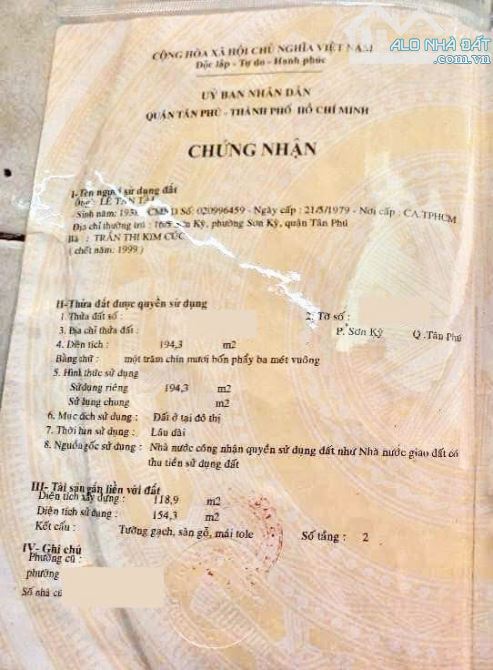 ALO NHÀ ĐẤT
.com.vn
CỘNG HÒA XÃ HỘI CHỦ NGHĨA VIỆT NAM
Độc lập - Tự do - Hạnh phúc
UỶ BAN NHÂN DÂN
QUẬN TÂN PHÚ - THÀNH PHỐ HỒ CHÍ MINH
CHỨNG NHẬN
I- Tên người sử dụng đất
Ông : LÊ TẤN
Sinh năm: CMND Số: 020996459 - Ngày cấp : 21/5/1979 - Nơi cấp : CA.TPHCM
Địa chỉ thường trú : Sơn Kỳ, phường Sơn Kỳ, quận Tân Phú
Bà : TRẦN THỊ KIM CÚC
( chết năm: 1999 )
II-Thửa đất được quyền sử dụng
1. Thửa đất số : 2. Tờ số :
3. Địa chỉ thửa đất : P. Sơn Kỳ Q .Tân Phú
4. Diện tích : 194,3 m2
Bằng chữ : một trăm chín mươi bốn phẩy ba mét vuông
5. Hình thức sử dụng
Sử dụng riêng 194,3 m2
Sử dụng chung m2
6. Mục đích sử dụng : Đất ở tại đô thị
7. Thời hạn sử dụng : Lâu dài
8. Nguồn gốc sử dụng : Nhà nước công nhận quyền sử dụng đất như Nhà nước giao đất có
thu tiền sử dụng đất
III- Tài sản gắn liền với đất
Diện tích xây dựng : 118,9 m2
Diện tích sử dụng : 154,3 m2
Kết cấu : Tường gạch, sàn gỗ, mái tole Số tầng : 2
IV- Ghi chú
Phường cũ :
phường
Số nhà cũ